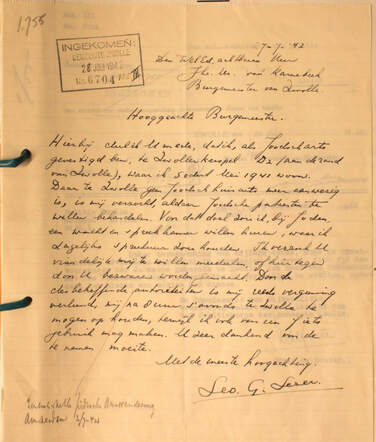 1.755
INGEKOMEN:
GEMEENTE ZWOLLE
No. 6704
7-7-'42
Den WelEd. achtb. Heer
van Karnebeek
Burgemeester van Zwolle.
Hooggeachte Burgemeester.
Hierbij deel ik U mede, dat ik, als Joodsch arts
gevestigd ben, te Zwollerkerspel
van Zwolle), waar ik sedert Mei 1941 woon.
Daar te Zwolle geen Joodsch huisarts meer aanwezig
is, is mij verzocht aldaar Joodsche patienten te
willen behandelen. Voor dat doel zou ik, bij Joden,
een wacht en spreekkamer willen huren, waar ik
dagelijks spreekuur zou houden. Ik verzoek U
vriendelijk mij te willen mededeelen, of hier tegen
door U bezwaren worden gemaakt. Door de
desbetreffende autoriteiten is mij reeds vergunning
verleend, mij na 8 uur 's avonds te Zwolle te
mogen ophouden, terwijl ik ook van een fiets
gebruik mag maken. U zeer dankend voor de
te nemen moeite.
Met de meeste hoogachting.
Leo. G.
Zentralstelle für jüdische Auswanderung
Amsterdam